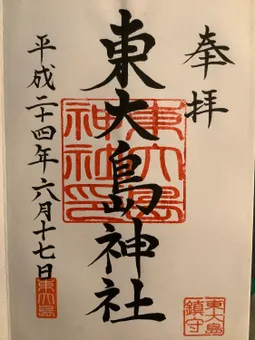 奉拝
東大島神社
平成二十四年六月十七日
東大島神社印
東大島
東大島鎮守